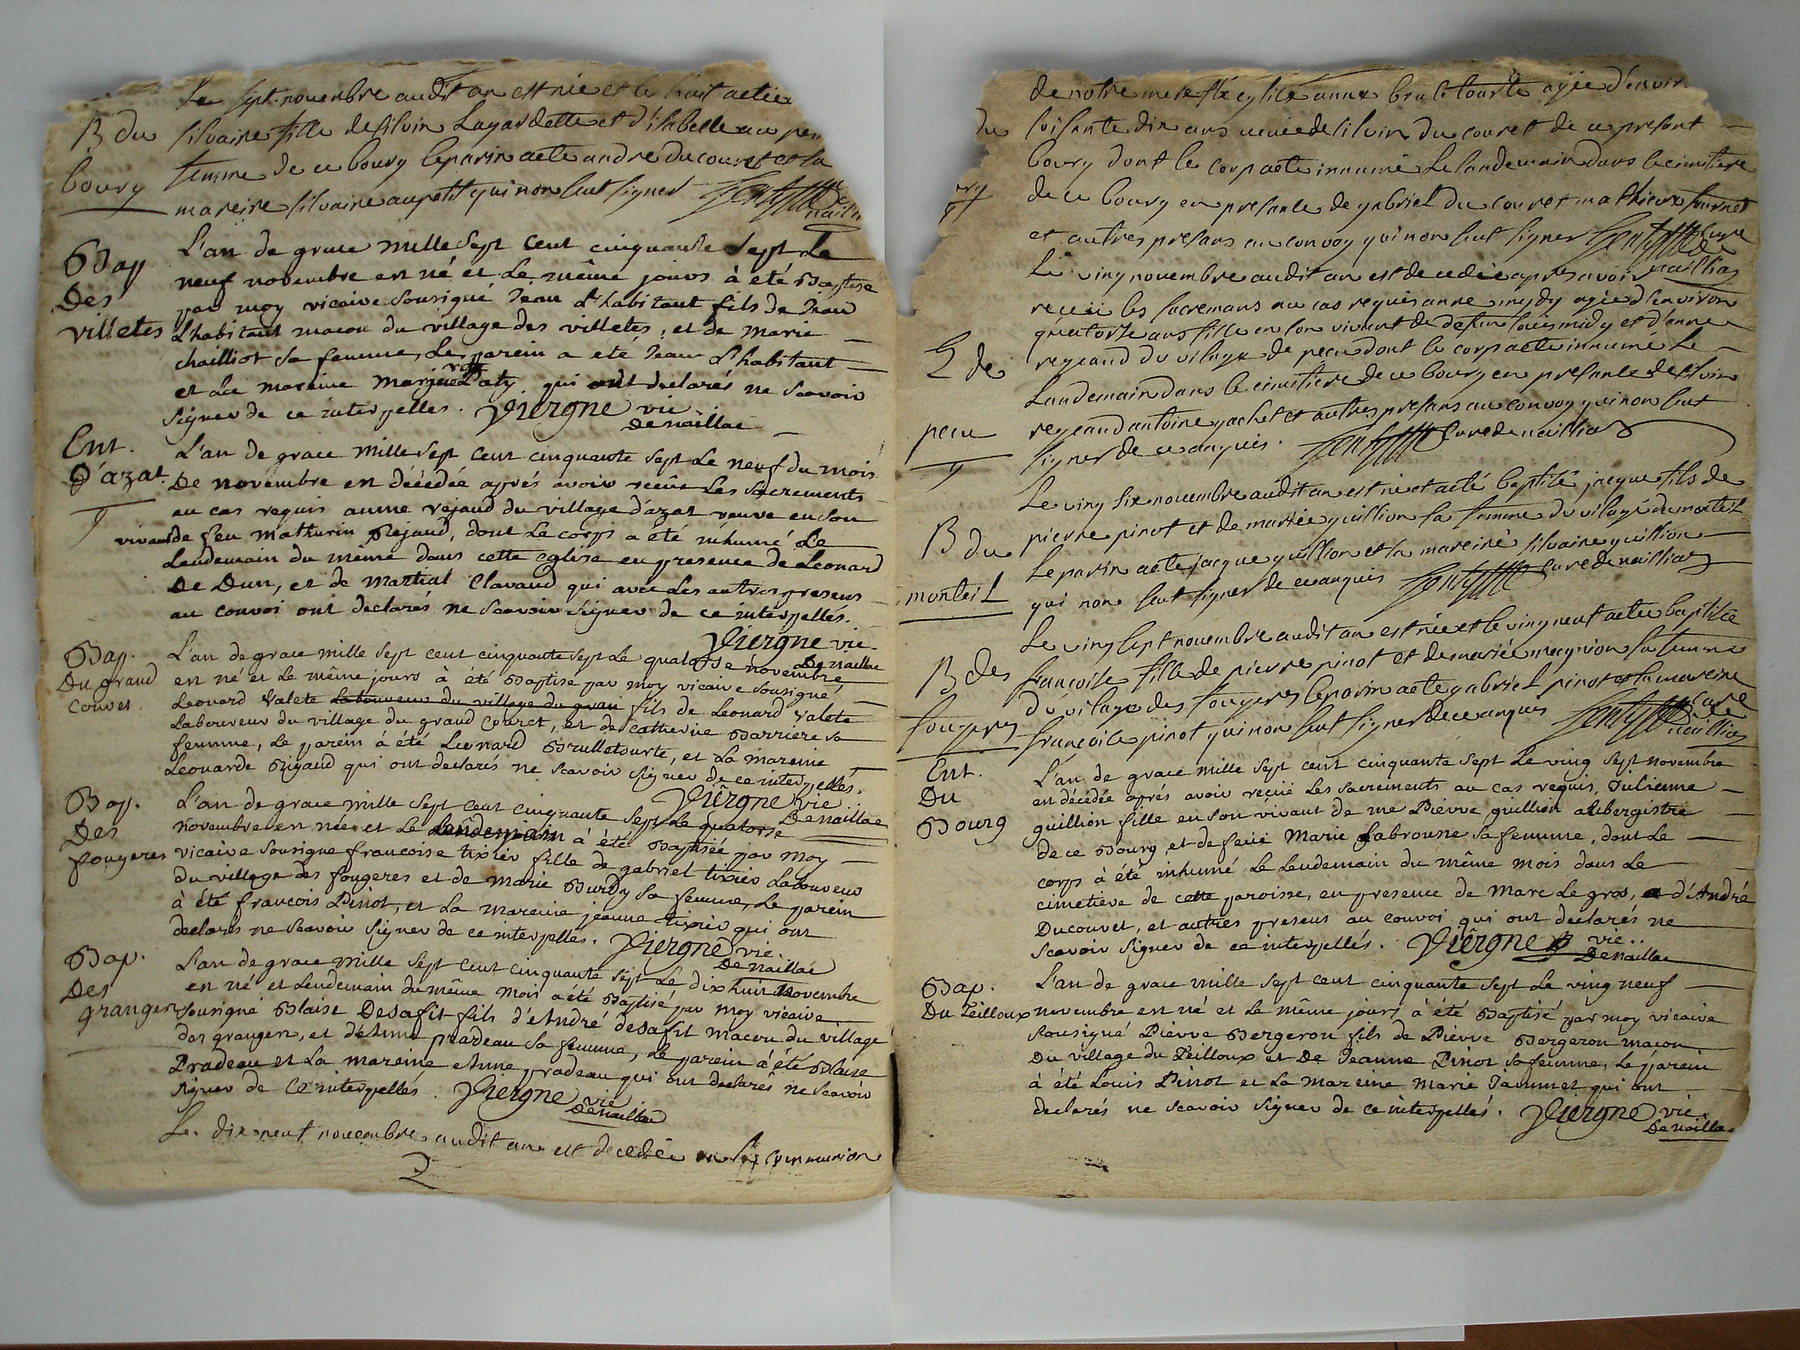 Le sept novembre audit an est née et le huit a etée
B du
bourg
silvaine fille de silvin Lagardette et d'isabelle au
femme de ce bourg le parin a eté andre ducouret et la
mareine silvaine aupetit qui non sceut signer
Bap
Des
villetes
L'an de grace mille sept cent cinquante sept le
neuf novembre en né et Le même jours à été Baptise
par moy vicaire sousigné Jean L'habitant fils de Jean
L'habitant macon du village des villetes, et de marie
chailliot sa femme, Le parein a été Jean L'habitant
et La mareine qui ont declarés ne scavoir
signer de ce interpellés. Viergne vic.
De naillac
Ent.
D'azat.
L'an de grace mille sept cent cinquante sept Le neuf du mois
De novembre en décédée aprés avoir Les sacrements
au cas requis anne rejaud du village d'azat veuve en son
vivant de feu mathurin Rejaud, dont Le corps a été inhumé Le
Lendemain du même dans cette Eglise en presence de Leonard
De Dun, et de martial Clavaud qui avec Les autres presens
au convoi ont declarés ne scavoir signer de ce interpellés.
Viergne vic.
De naillac
Bap.
Du grand
couret.
L'an de grace mille sept cent cinquante sept Le quatorse novembre
en né et Le même jours à été Baptise par moy vicaire sousigné
Leonard valete Laboureur du village du gran fils de Leonard valete
Laboureur du village du grand Couret, et de catherine Barriere sa
femme, Le parein à été Leonard Brulletourte, et La mareine
Leonarde Rigaud qui ont declarés ne scavoir signer de ce interpellés.
Viêrgne vic.
De naillac
Bap.
Des
fougeres
L'an de grace mille sept cent cinquante sept Le quatorse
novembre en née et Le Lendemain à été Baptisée par moy
vicaire sousigne francoise tixier fille de gabriel tixier Laboureur
du village des fougeres et de marie Burdy sa femme, Le parein
à été francois Pinot, et La mareine jeanne tixier qui ont
declarés ne scavoir signer de ce interpellés. Viergne vic.
De naillac
Bap.
Des
granges
L'an de grace mille sept cent cinquante sept Le dix huit Novembre
en né et Lendemain du même mois a été Baptisé par moy vicaire
sousigné Blaise Desafit fils d'André desafit macon du village
des granges, et d'Anne pradeau sa femme, Le parein à été Blaise
Pradeau et La mareine Anne pradeau qui ont declarés ne scavoir
signer de ce interpellés. Viergne vic.
De naillac
Le dix neuf novembre audit an est decedée en la communion
2
de notre mere ste eglise anne brule tourte agée d'envir
du
soisante dix ans veuve de silvin du couret de ce present
bourg dont le corp a eté innumé Le landemain dans le cimetiere
de ce bourg en presance de gabriel du couret mathieux fournet
et autres presans au convoy qui non sceut signer curé
de naillias
Le ving novembre audit an est decedée apres avoir
receü les sacremans au cas requis anne midy agée d'environ
quatorse ans fille en son vivant de defun loüis midy et d'anne
E de
pecu
rejeaud du vilage de pecu dont le corp a eté innumé Le
Landemain dans le cimetiere de ce bourg en presance de silvin
rejeaud antoine gachet et autres presans au convoy qui non sceut
signer de ce anquis. curé de naillias
B du
monteil
Le ving six novembre audit an est né et a eté baptisé jacque fils de
pierre pinot et de mariée guillion sa femme du vilage du monteil
Le parin a eté jacque guillion et la mareine silvaine guillion
qui non sceut signer de ce anquis curé de naillias
B des
fougeres
Le ving sept novembre audit an est née et le ving neuf a eté baptisée
francoise fille de pierre pinot et de mariée magnion sa femme
du vilage des fougeres le parin a eté gabriel pinot et la mareine
francoise pinot qui non sceut signer de ce anquis curé
de naillias
Ent.
Du
Bourg
L'an de grace mille sept cent cinquante sept Le ving sept novembre
en décédée aprés avoir reçuë Les sacrements au cas requis, Julienne
guillion fille en son vivant de me Piérre guillion albergistre
de ce Bourg et de feüe Marie Labrousse sa femme, dont Le
corps à été inhumé Le Lendemain du même mois dans Le
cimetiere de cette paroisse, en presence de Marc Le gros, d'André
Ducouret, et autres presens au convoi qui ont declarés ne
scavoir signer de ce interpellés. Viêrgne vic.
De naillac
Bap.
Du Peilloux
L'an de grace mille sept cent cinquante sept Le ving neuf
novembre en né et Le même jours à été Baptisé par moy vicaire
sousigné Piérre Bergeron fils de Piérre Bergeron macon
Du village du Peilloux et De Jeanne Pinot sa femme, Le parein
à été Louis Pinot et La mareine marie Jammet qui ont
declarés ne scavoir signer de ce interpellés. Viergne vic.
De naillac